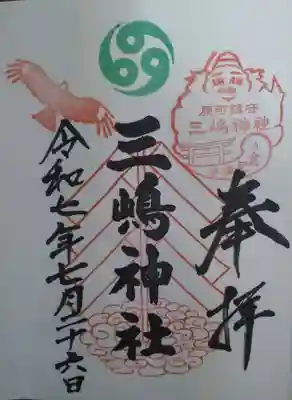 奉拝
原町鎮守
三嶋神社
三嶋神社
令和七年七月二十六日